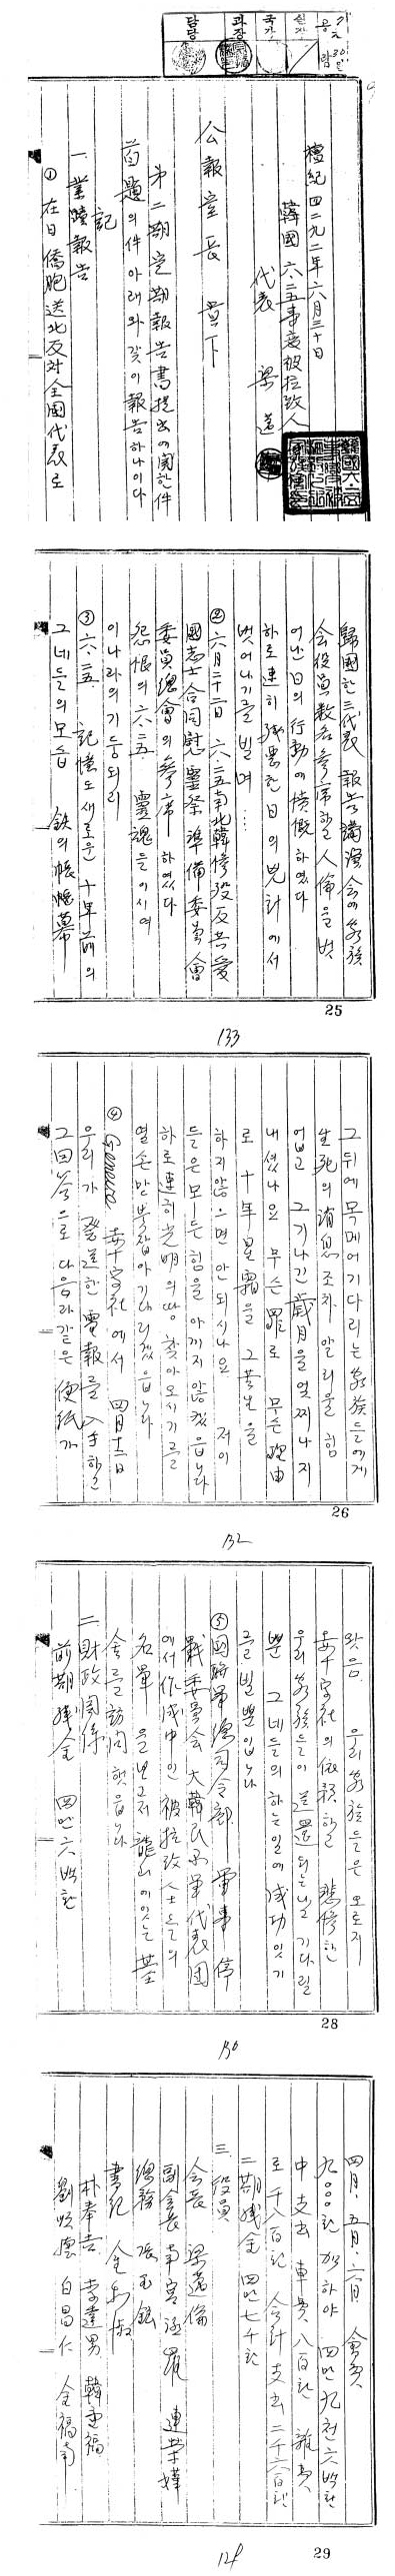 담당
과장
국장
실장
공람
檀紀四二九二年六月三十日
韓國 六·二五事變被拉致人
代表 梁
公報室長 貴下
第二期定期報告書提出에関한件
首題의件아래와갗이報告하나이다
記
一 業蹟報告
① 在日僑胞送北反対全國代表로
歸國한三代表 報告講演会에家族
会役員数名參席하고人倫을벗
어난日의行動에憤慨하였다
하로速히残惡한日의兇計에서
벗어나기를빌며…
② 六月二十二日 六·二五南北韓惨殺反共愛
國志士合同慰靈祭準備委員會
委員總會의參席하였다
怨恨의六·二五 靈魂들이시여
이나라의기둥되리
③ 六·二五 記憶도새로운十年前의
그네들의모습 鉄의帳幕
25
133
그뒤에목메어기다리는家族들에게
生死의消息조차알리울힘
없고 그기나긴歲月을엇찌나지
내셨나요 무슨罪로 무슨理由
로 十年星霜을그苦生을
하지않으면안되시나요 저이
들은모ー든힘을아끼지않겠읍니다
하로速히光明의땅찾아오시기를
열손만부잡아기다리겠읍니다
④ Geneva 赤十字社에서 四月十二日
우리가發送한電報를入手하고
그回答으로다음과같은便紙가
26
132
왓음 우리家族들은오로지
赤十字社의依賴하고悲惨한
우리家族들이送還되는날기다릴
뿐 그네들의하는일에成功잇기
를빌뿐입니다
⑤ 國際聯合司令部 軍事停
戰委員会大韓民國軍代表団
에서作成中인被拉致人士들의
名單을보고저龍山에잇는基
舍를訪問했읍니다
二 財政関係
前期殘金 四만六백환
28
130
四月·五月·六月 會費
九○○○환加하야 四만九천六백환
中支出 車費八百환 雜費
로千八百환 合計支出二千六百환
二期殘金 四만七千환
三 役員
会長 梁
副会長 南宮
總務 張
書紀 金
朴奉
韓
劉
白昌仁 金福南
29
129